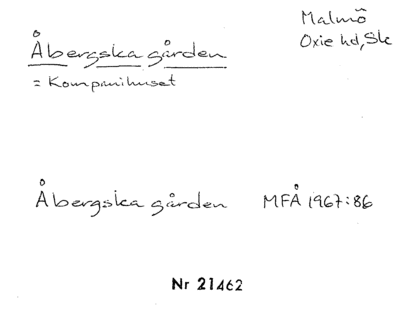 Malmö
Oxie hd, Sk
Åbergska gården
= Kompanihuset
Åbergska gården MFÅ 1967:86
Nr 21462